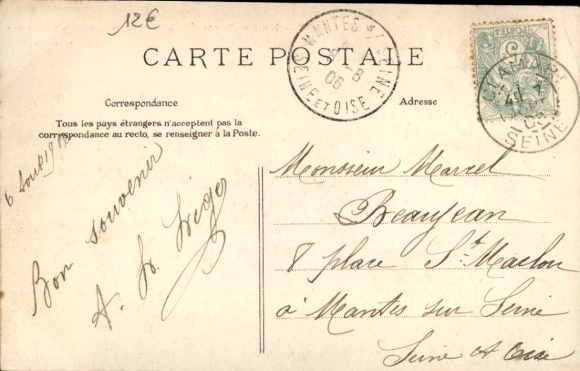 12€
CARTE POSTALE
MANTES S/ SEINE
8
06
SEINE-ET-OISE
SEINE
Correspondance
Adresse
Tous les pays étrangers n'acceptent pas la
correspondance au recto, se renseigner à la Poste.
6 Août 19
Bon souvenir
A.
Monsieur Marcel
Beaujean
8 place St Maclou
à Mantes sur Seine
Seine et Oise